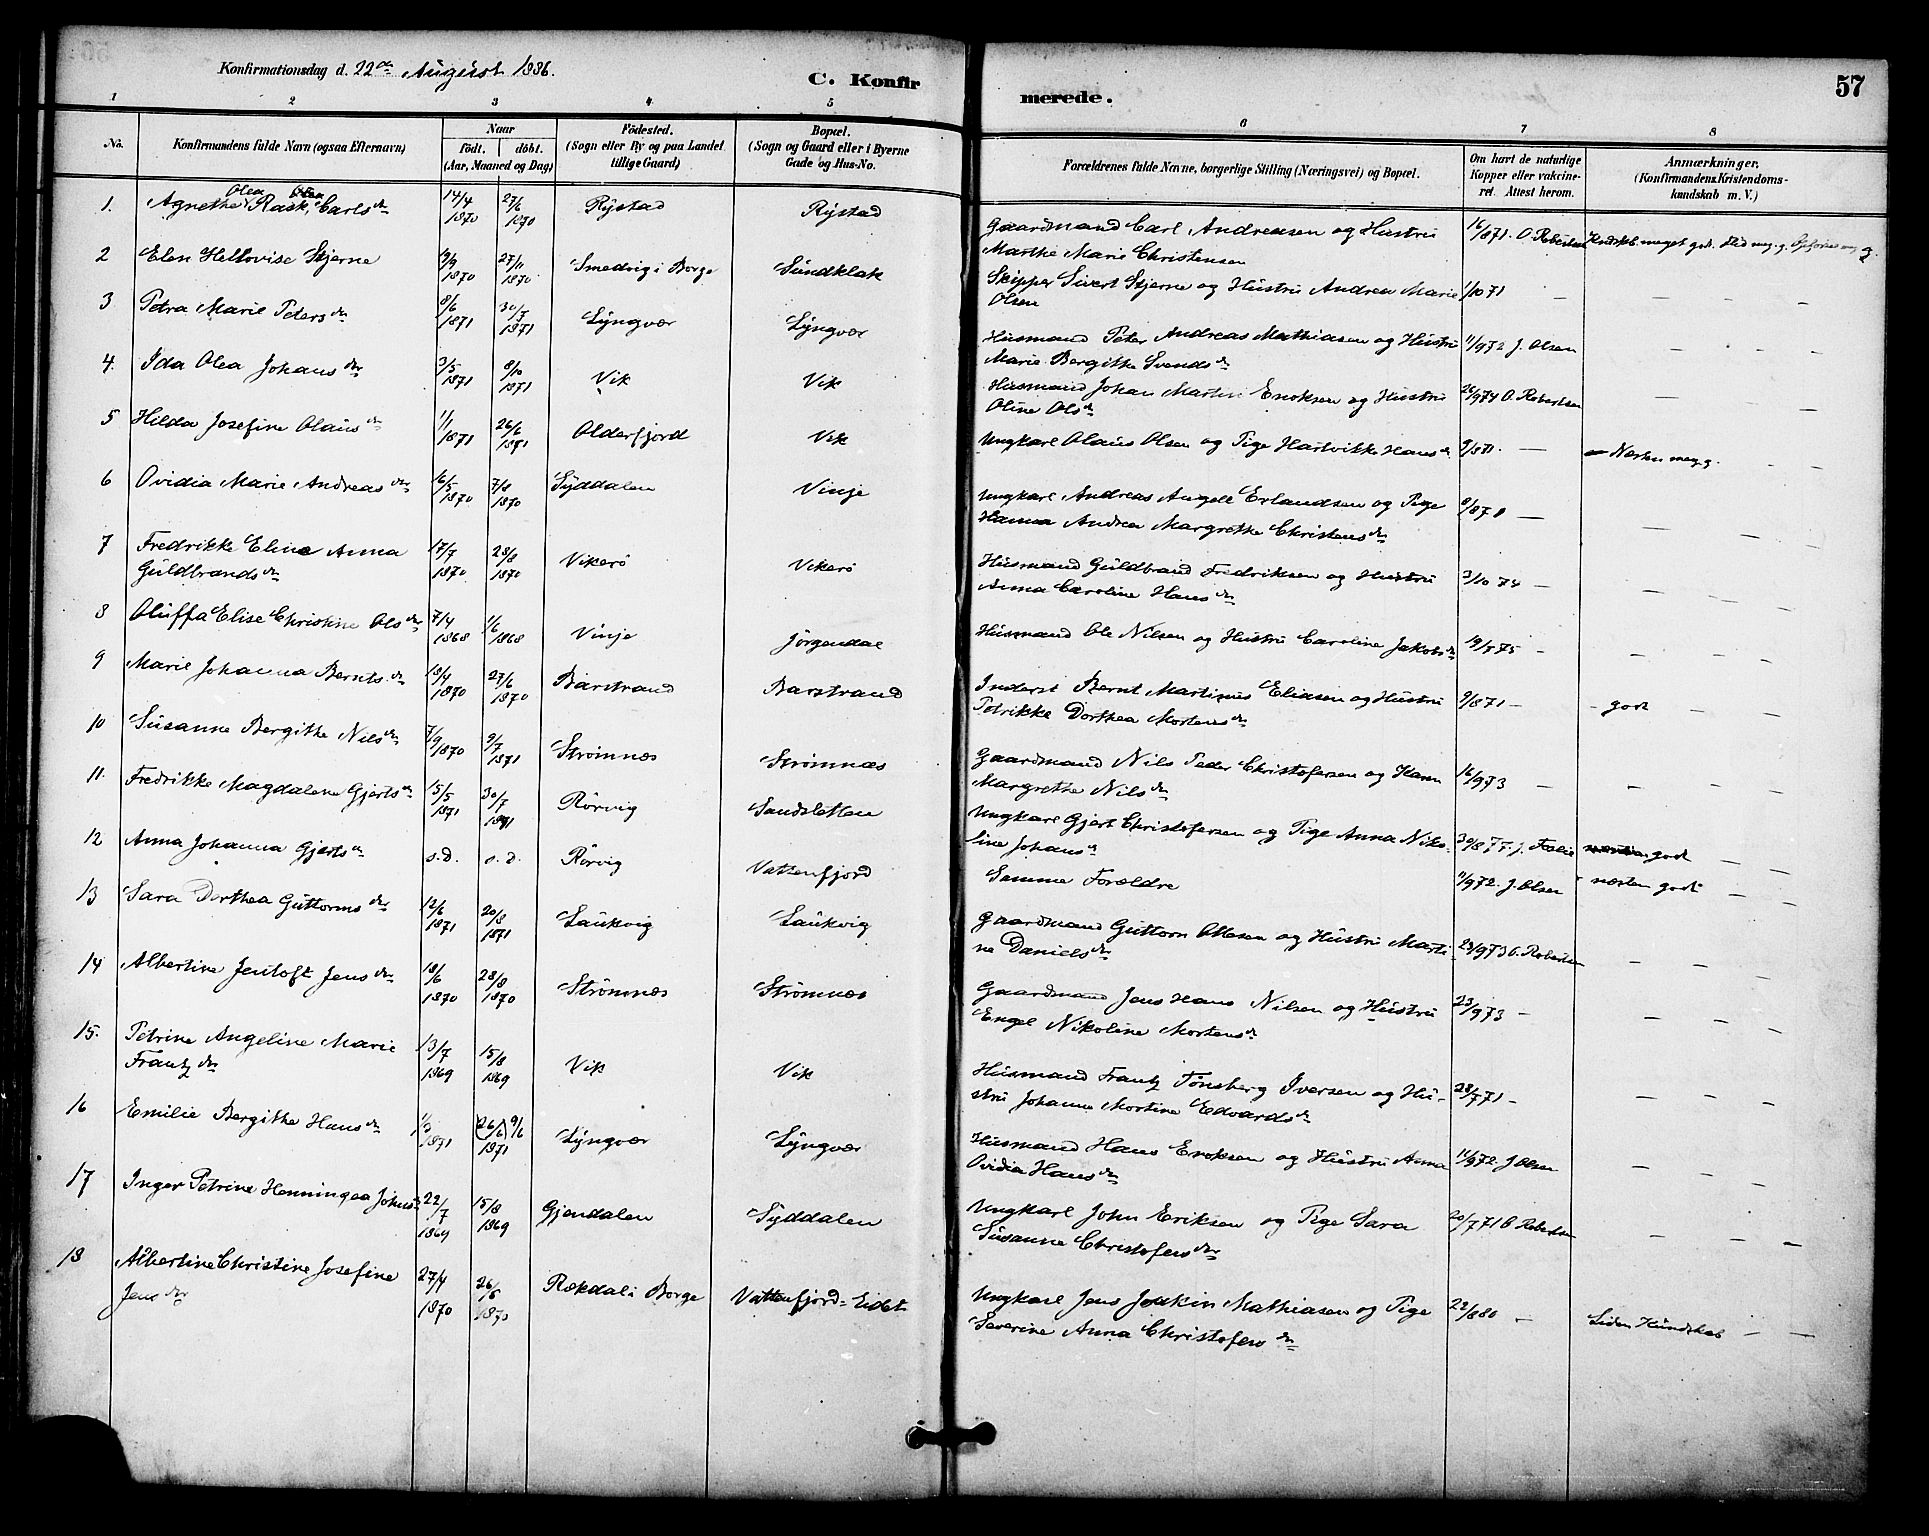 57
Konfirmationsdag d. 22de August 1886.
C. Konfirmerede.
1 2 3 4 5 6 7 8
No. Konfirmandens fulde Navn (ogsaa Efternavn) Naar födt. döbt. (Aar, Maaned og Dag) Födested. (Sogn eller By og paa Landet tillige Gaard) Bopæl. (Sogn og Gaard eller i Byerne Gade og Hus-No. Forældrenes fulde Navne, borgerlige Stilling (Næringsvei) og Bopæl. Om havt de naturlige Kopper eller vakcineret. Attest herom. Anmærkninger. (Konfirmandens Kristendomskundskab m. V.)
1. Agnethe Olea Rask, Carlsdr 14/4 1870 27/6 1870 Rystad Rystad Gaardmand Carl Andreasen og Hustru 16/871. O. Robertsen Kundskb meget god. Flid meg. g.
Marthe Marie Christensen
2 Elen Hellovise Stjerne 9/9 1870 27/11 1870 Smedvig i Borge Sundklak Skipper Sivert Stjerne og Hustru Andrea Marie 1/1071 — — — — —
Olsen
3 Petra Marie Petersdr 8/6 1871 30/7 1871 Lyngvær Lyngvær Husmand Peter Andreas Mathiasen og Hustru 11/972 J. Olsen — — —
Marie Bergithe Svendsdr
4. Ida Olea Johansdr 3/5 1871 8/10 1871 Vik Vik Husmand Johan Martin Enoksen og Hustru 26/974 O. Robertsen — — —
Oline Olsdr
5 Hilda Josefine Olausdr 1/1 1871 26/6 1871 Olderfjord Vik Ungkarl Olaus Olsen og Pige Hartvikke Hansdr — Næsten meg. g. — —
6 Ovidia Marie Andreasdr 16/5 1870 7/8 1870 Syddalen Vinje Ungkarl Andreas Angell Erlandsen og Pige — — — —
Hanna Andrea Margrethe Christensdr
7 Fredrikke Eline Anna 17/7 1870 28/8 1870 Vikerö Vikerö Husmand Guldbrand Fredriksen og Hustru 3/10 74 — — — —
Guldbrandsdr Anna Caroline Hansdr
8 Oluffa Elise Christine Olsdr 7/4 1868 1/6 1868 Vinje Jörgendal Husmand Ole Nilsen og Hustru Caroline Jakobsdr 19/775 — — — —
9 Marie Johanna Berntsdr 18/4 1870 27/6 1870 Barstrand Barstrand Inderst Bernt Martinus Eliasen og Hustru 9/871 — - godt — —
Petrikke Dorthea Mortensdr
10 Susanne Bergithe Nilsdr 7/9 1870 9/7 1871 Strömnæs Strömnæs Gaardmand Nils Peder Christofersen og Karen 16/973 — — — —
Margrethe Nilsdr
11. Fredrikke Magdalene Gjertsdr 15/5 1871 30/7 1871 Rörvig Sandsletten Ungkarl Gjert Christofersen og Pige Anna Niko- 30/877. godt — —
line Johansdr
12 Anna Johanna Gjertsdr s.d. s.d. Rörvig Vattenfjord Samme Forældre 11/972. J. Olsen næsten godt — —
13 Sara Dorthea Guttormsdr 12/6 1871 20/8 1871 Laukvig Laukvig Gaardmand Guttorm Ottesen og Hustru Marti- 23/973 O. Robertsen — — — —
ne Danielsdr
14 Albertine Jentoft Jensdr 18/6 1870 28/8 1870 Strömnæs Strömnæs Gaardmand Jens Hans Nilsen og Hustru 23/973 — — — —
Engel Nikoline Mortensdr
15. Petrine Angeline Marie 13/7 1869 15/8 1869 Vik Vik Husmand Frantz Tönsberg Iversen og Hu- 28/771 — — — —
Frantzdr stru Johanne Mortine Edvardsdr
16 Emilie Bergithe Hansdr 1/3 1871 (26/6) 9/6 1871 Lyngvær Lyngvær Husmand Hans Enoksen og Hustru Anna 11/972 J. Olsen — — —
Ovidia Hansdr
17 Inger Petrine Henningea Johnsdr 22/7 1869 15/8 1869 Gjendalen Syddalen Ungkarl John Eriksen og Pige Sara 20/771 O. Robertsen — — —
Susanne Christofersdr
18 Albertine Christine Josefine 27/4 1870 26/6 1870 Rekdal i Borge Vattenfjord-Eidet Ungkarl Jens Joakim Mathiasen og Pige 22/880 — Liden Kundskab — —
Jensdr Severine Anna Christofersdr